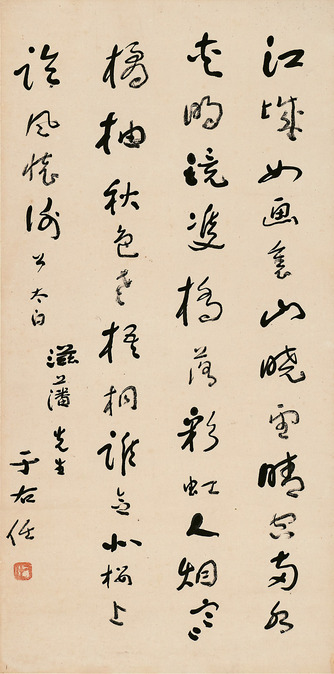 江城如畫裏山曉望晴空兩水
夾明鏡雙橋落彩虹人烟寒
橘柚秋色老梧桐誰念北樓上
臨風懷謝公 太白
滋藩先生
于右任